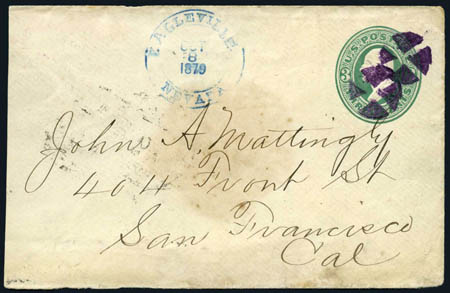 EAGLEVILLE
OCT
8
1879
NEVADA
U.S. POST
John A. Mattingly
404 Front St
San Francisco
Cal